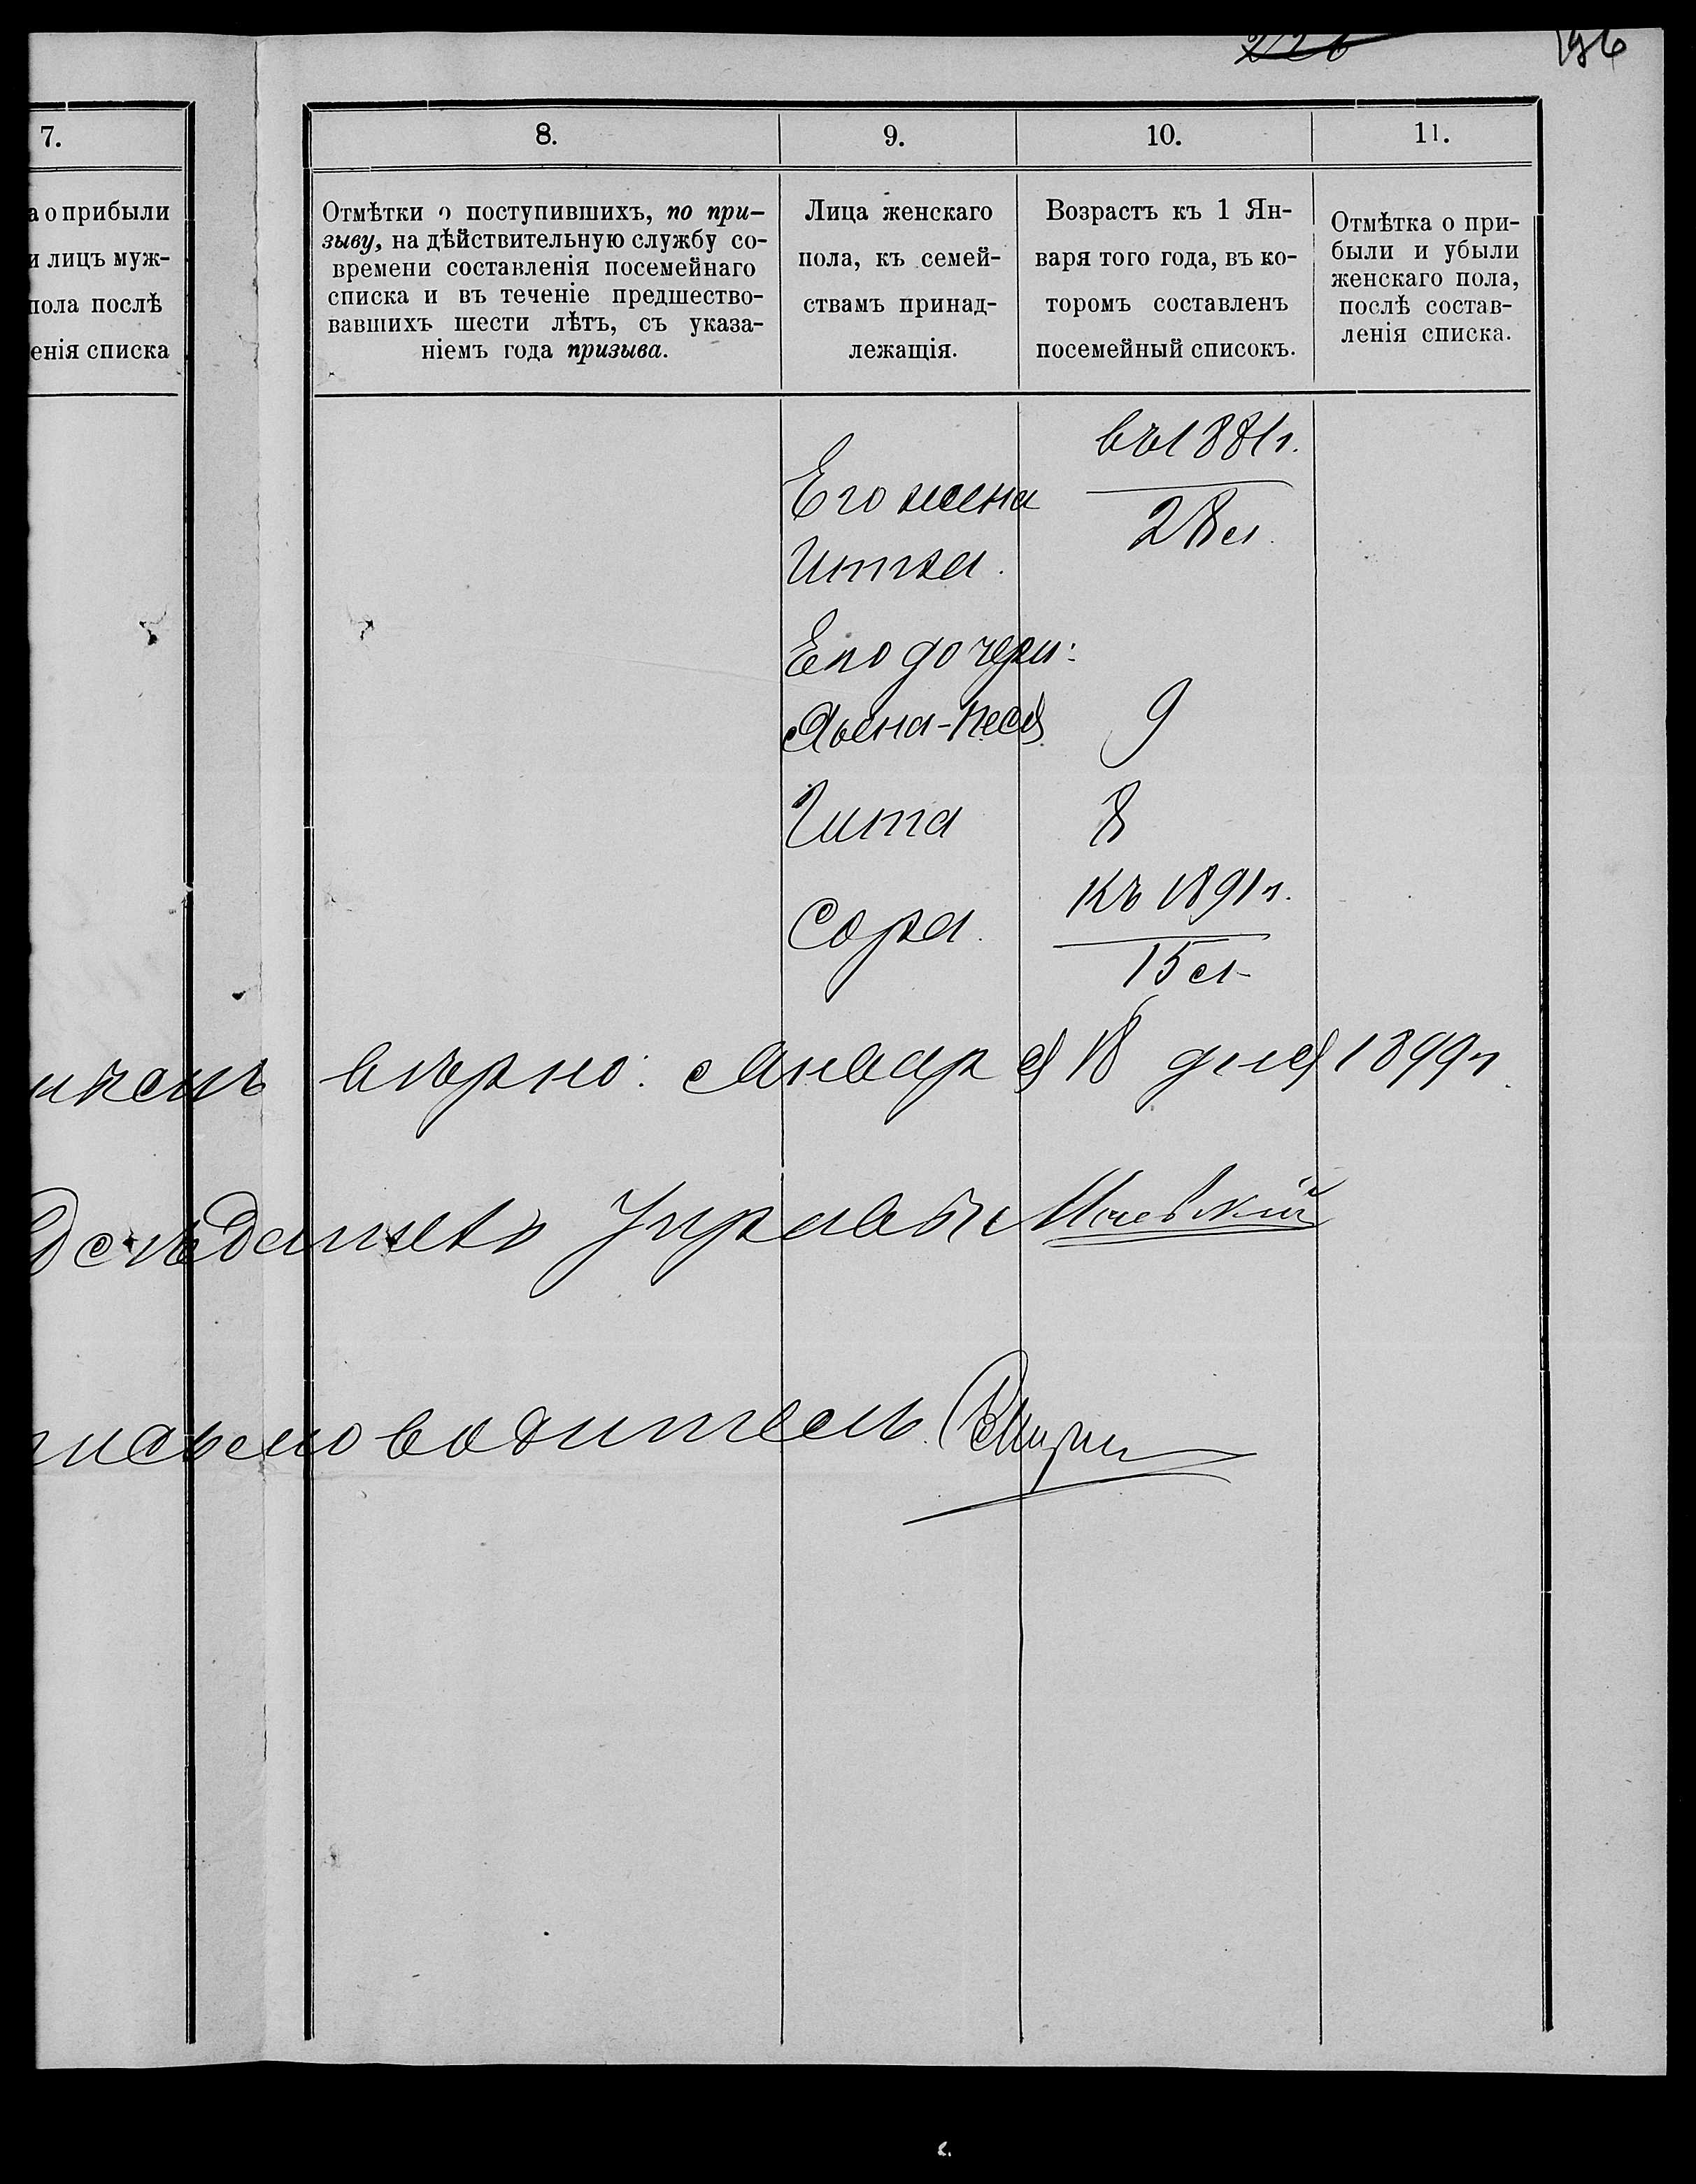 226 196
7. 8. 9. 10. 11.
а о прибыли
и лицъ муж-
пола послѣ
енія списка
Отмѣтки о поступившихъ, по при-
зыву, на дѣйствительную службу со-
времени составленія посемейнаго
списка и въ теченіе предшество-
вавшихъ шести лѣтъ, съ указа-
ніемъ года призыва.
Лица женскаго
пола, къ семей-
ствамъ принад-
лежащія.
Возрастъ къ 1 Ян-
варя того года, въ ко-
торомъ составленъ
посемейный списокъ.
Отмѣтка о при-
были и убыли
женскаго пола,
послѣ состав-
ленія списка.
въ 1881 г.
Его жена
28 л.
Итка.
Его дочери:
Песя 9
Гита 8
къ 1891 г.
Сорка.
15 л.
вѣрно: Января 18 дня 1899 г.
дсѣдатель Управы
исьмоводитель